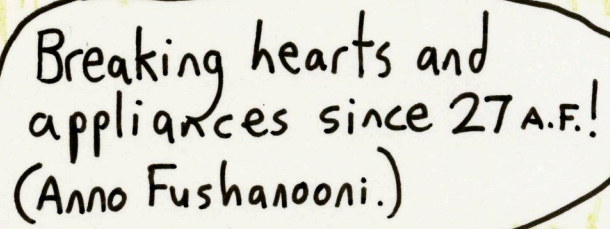 Breaking hearts and
appliances since 27 A.F.!
(Anno Fushanooni.)